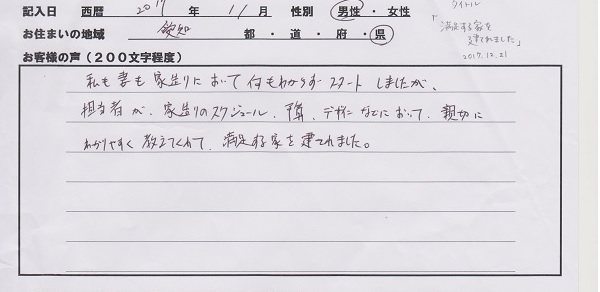 記入日 西暦 2017 年 11月 性別 男性・女性
タイトル
「満足する家を
建てれました」
2017.12.21
お住まいの地域 愛知 都・道・府・県
お客様の声(200文字程度)
私も妻も家造りにおいて何もわからずスタートしましたが、
担当者が、家造りのスケジュール、予算、デザインなどにおいて、親切に
わかりやすく教えてくれて、満足する家を建てれました。